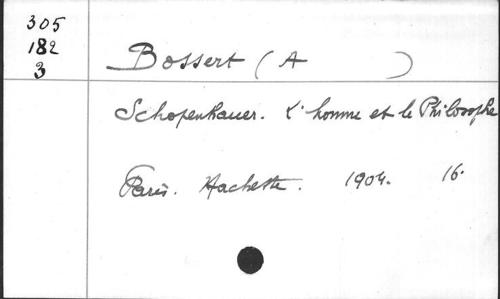 305
182
3
Bossert (A )
Schopenhauer. L'homme et le Philosophe
Paris. Hachette. 1904. 16.